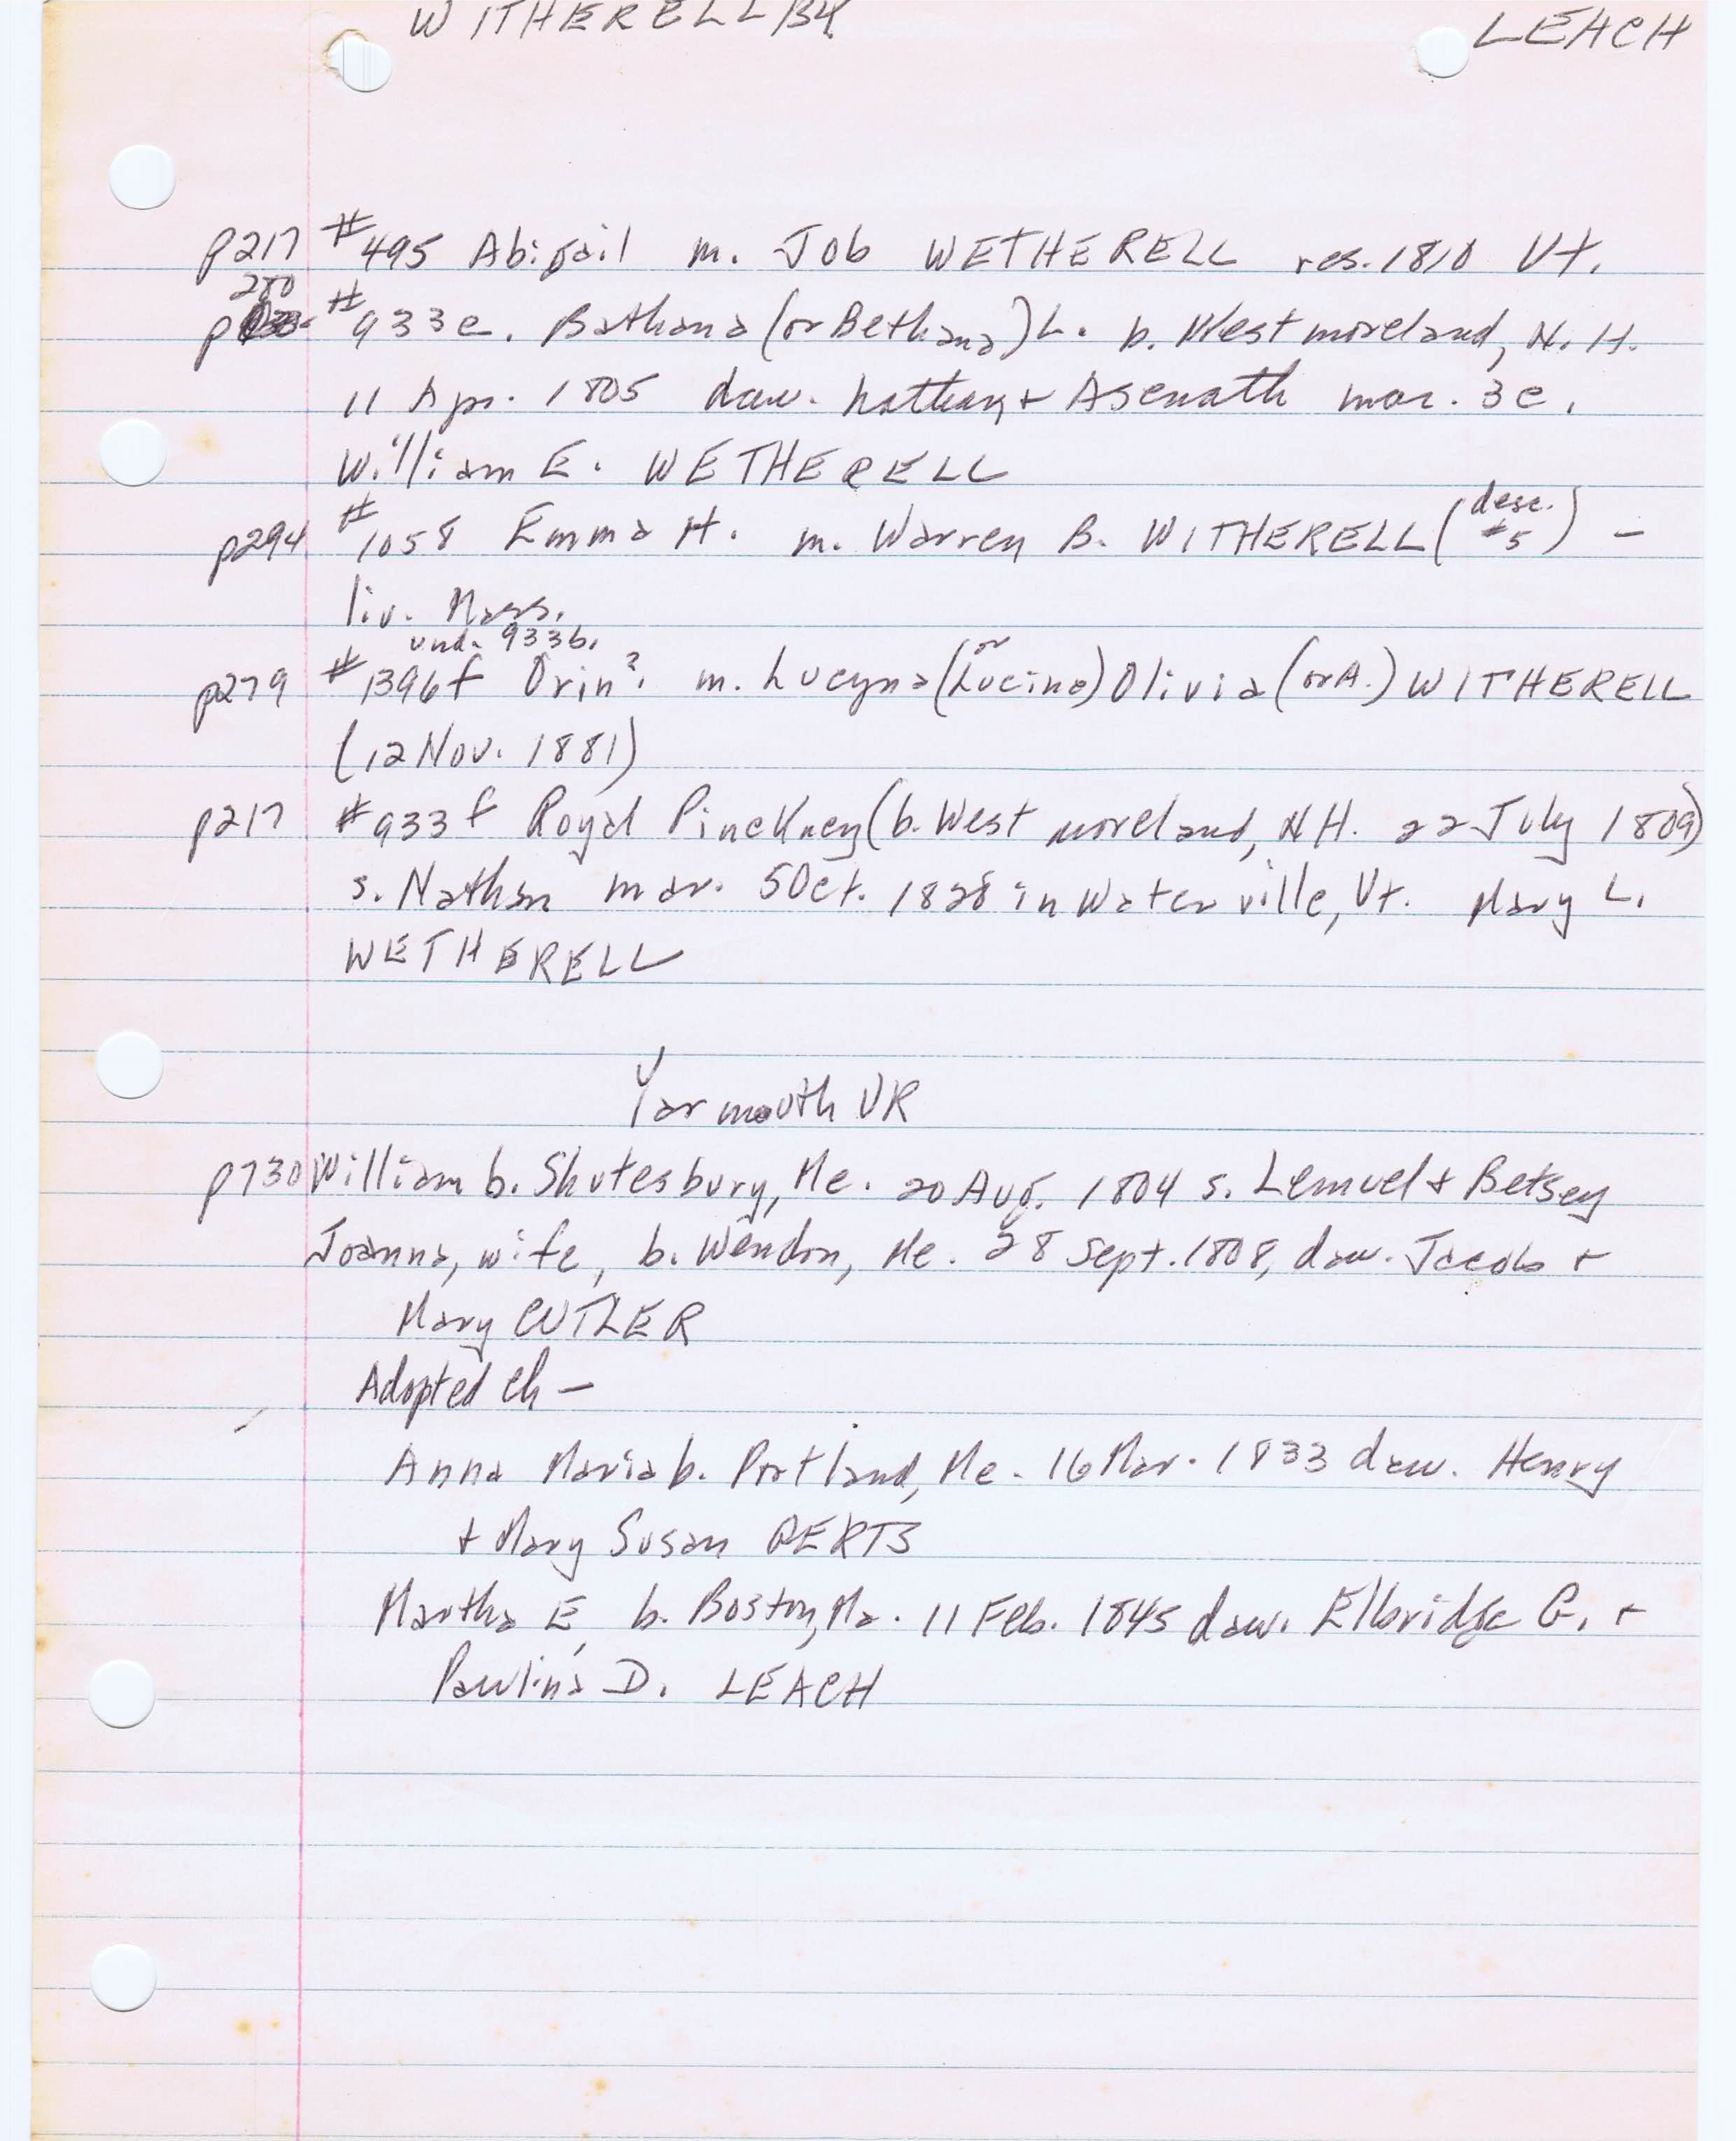 WITHERELL 134
LEACH
p217 #495 Abigail m. Job WETHERELL res. 1810 Vt.
280
p #933e. Bathana (or Bethana) L. b. Westmoreland, N.H.
11 Apr. 1805 daw. Nathan + Asenath mar. 3e.
William E. WETHERELL
p294 #1058 Emma H. m. Warren B. WITHERELL (desc. #5) -
liv. Mass.
und. 933b.
p279 #1396f Orin? m. Lucyna (or Lucina) Olivia (or A.) WITHERELL
(12 Nov. 1881)
p217 #933f Royal Pinckney (b. Westmoreland, NH. 22 July 1809)
s. Nathan mar. 5 Oct. 1828 in Waterville, Vt. Mary L.
WETHERELL
Yarmouth VR
p730 William b. Shutesbury, Me. 20 Aug. 1804 s. Lemuel + Betsey
Joanna, wife, b. Wendon, Me. 28 Sept. 1808, daw. Jacob +
Mary CUTLER
Adopted ch -
Anna Maria b. Portland, Me. 16 Mar. 1833 daw. Henry
+ Mary Susan
Martha E, b. Boston, Ma. 11 Feb. 1845 daw. Elbridge G. +
Paulina D. LEACH